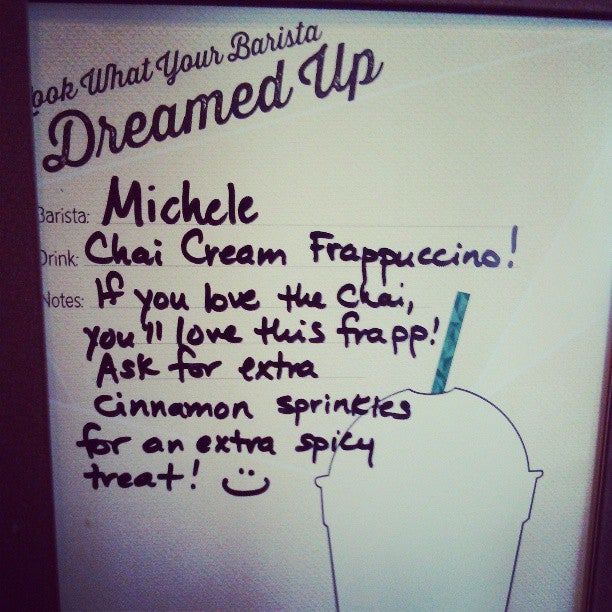 ook What Your Barista
Dreamed Up
Barista: Michele
Drink: Chai Cream Frappuccino!
Notes: If you love the Chai,
you'll love this frapp!
Ask for extra
cinnamon sprinkles
for an extra spicy
treat! :)